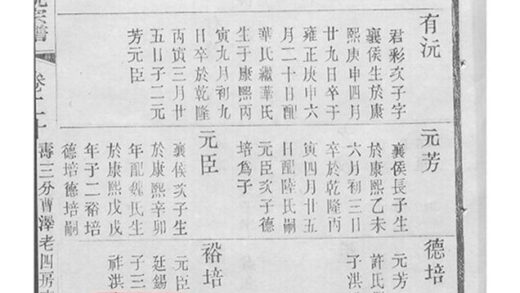 有沅
君彩次子字
襄侯生於康
熙庚申四月
廿九日卒于
雍正庚申六
月二十日配
華氏繼華氏
生于康熙丙
寅九月初九
日卒於乾隆
丙寅三月廿
五日子二元
芳元臣
元芳
襄侯長子生
於康熙乙未
六月初三日
卒於乾隆丙
寅四月廿五
日配陸氏嗣
元臣次子德
培爲子
元臣
襄侯次子生
於康熙辛卯
年配魏氏生
於康熙戊戌
年子二裕培
德培德培嗣
德培
元芳
許氏
子洪
裕培
元臣
廷錫
子三
祥洪
宗譜
卷二十
壽三分曹澤老四房